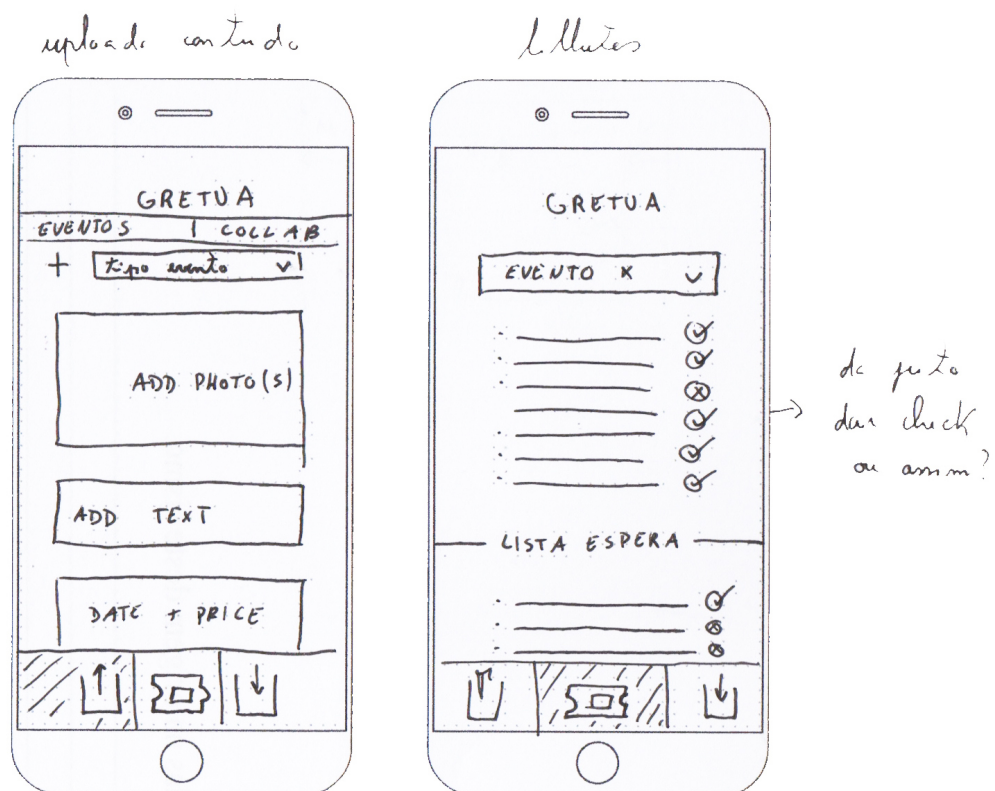 upload de conteúdo
GRETUA
EVENTOS | COLLAB
+ tipo evento
ADD PHOTO(S)
ADD TEXT
DATE + PRICE
bilhetes
GRETUA
EVENTO X
LISTA ESPERA
dar check
ou assim?